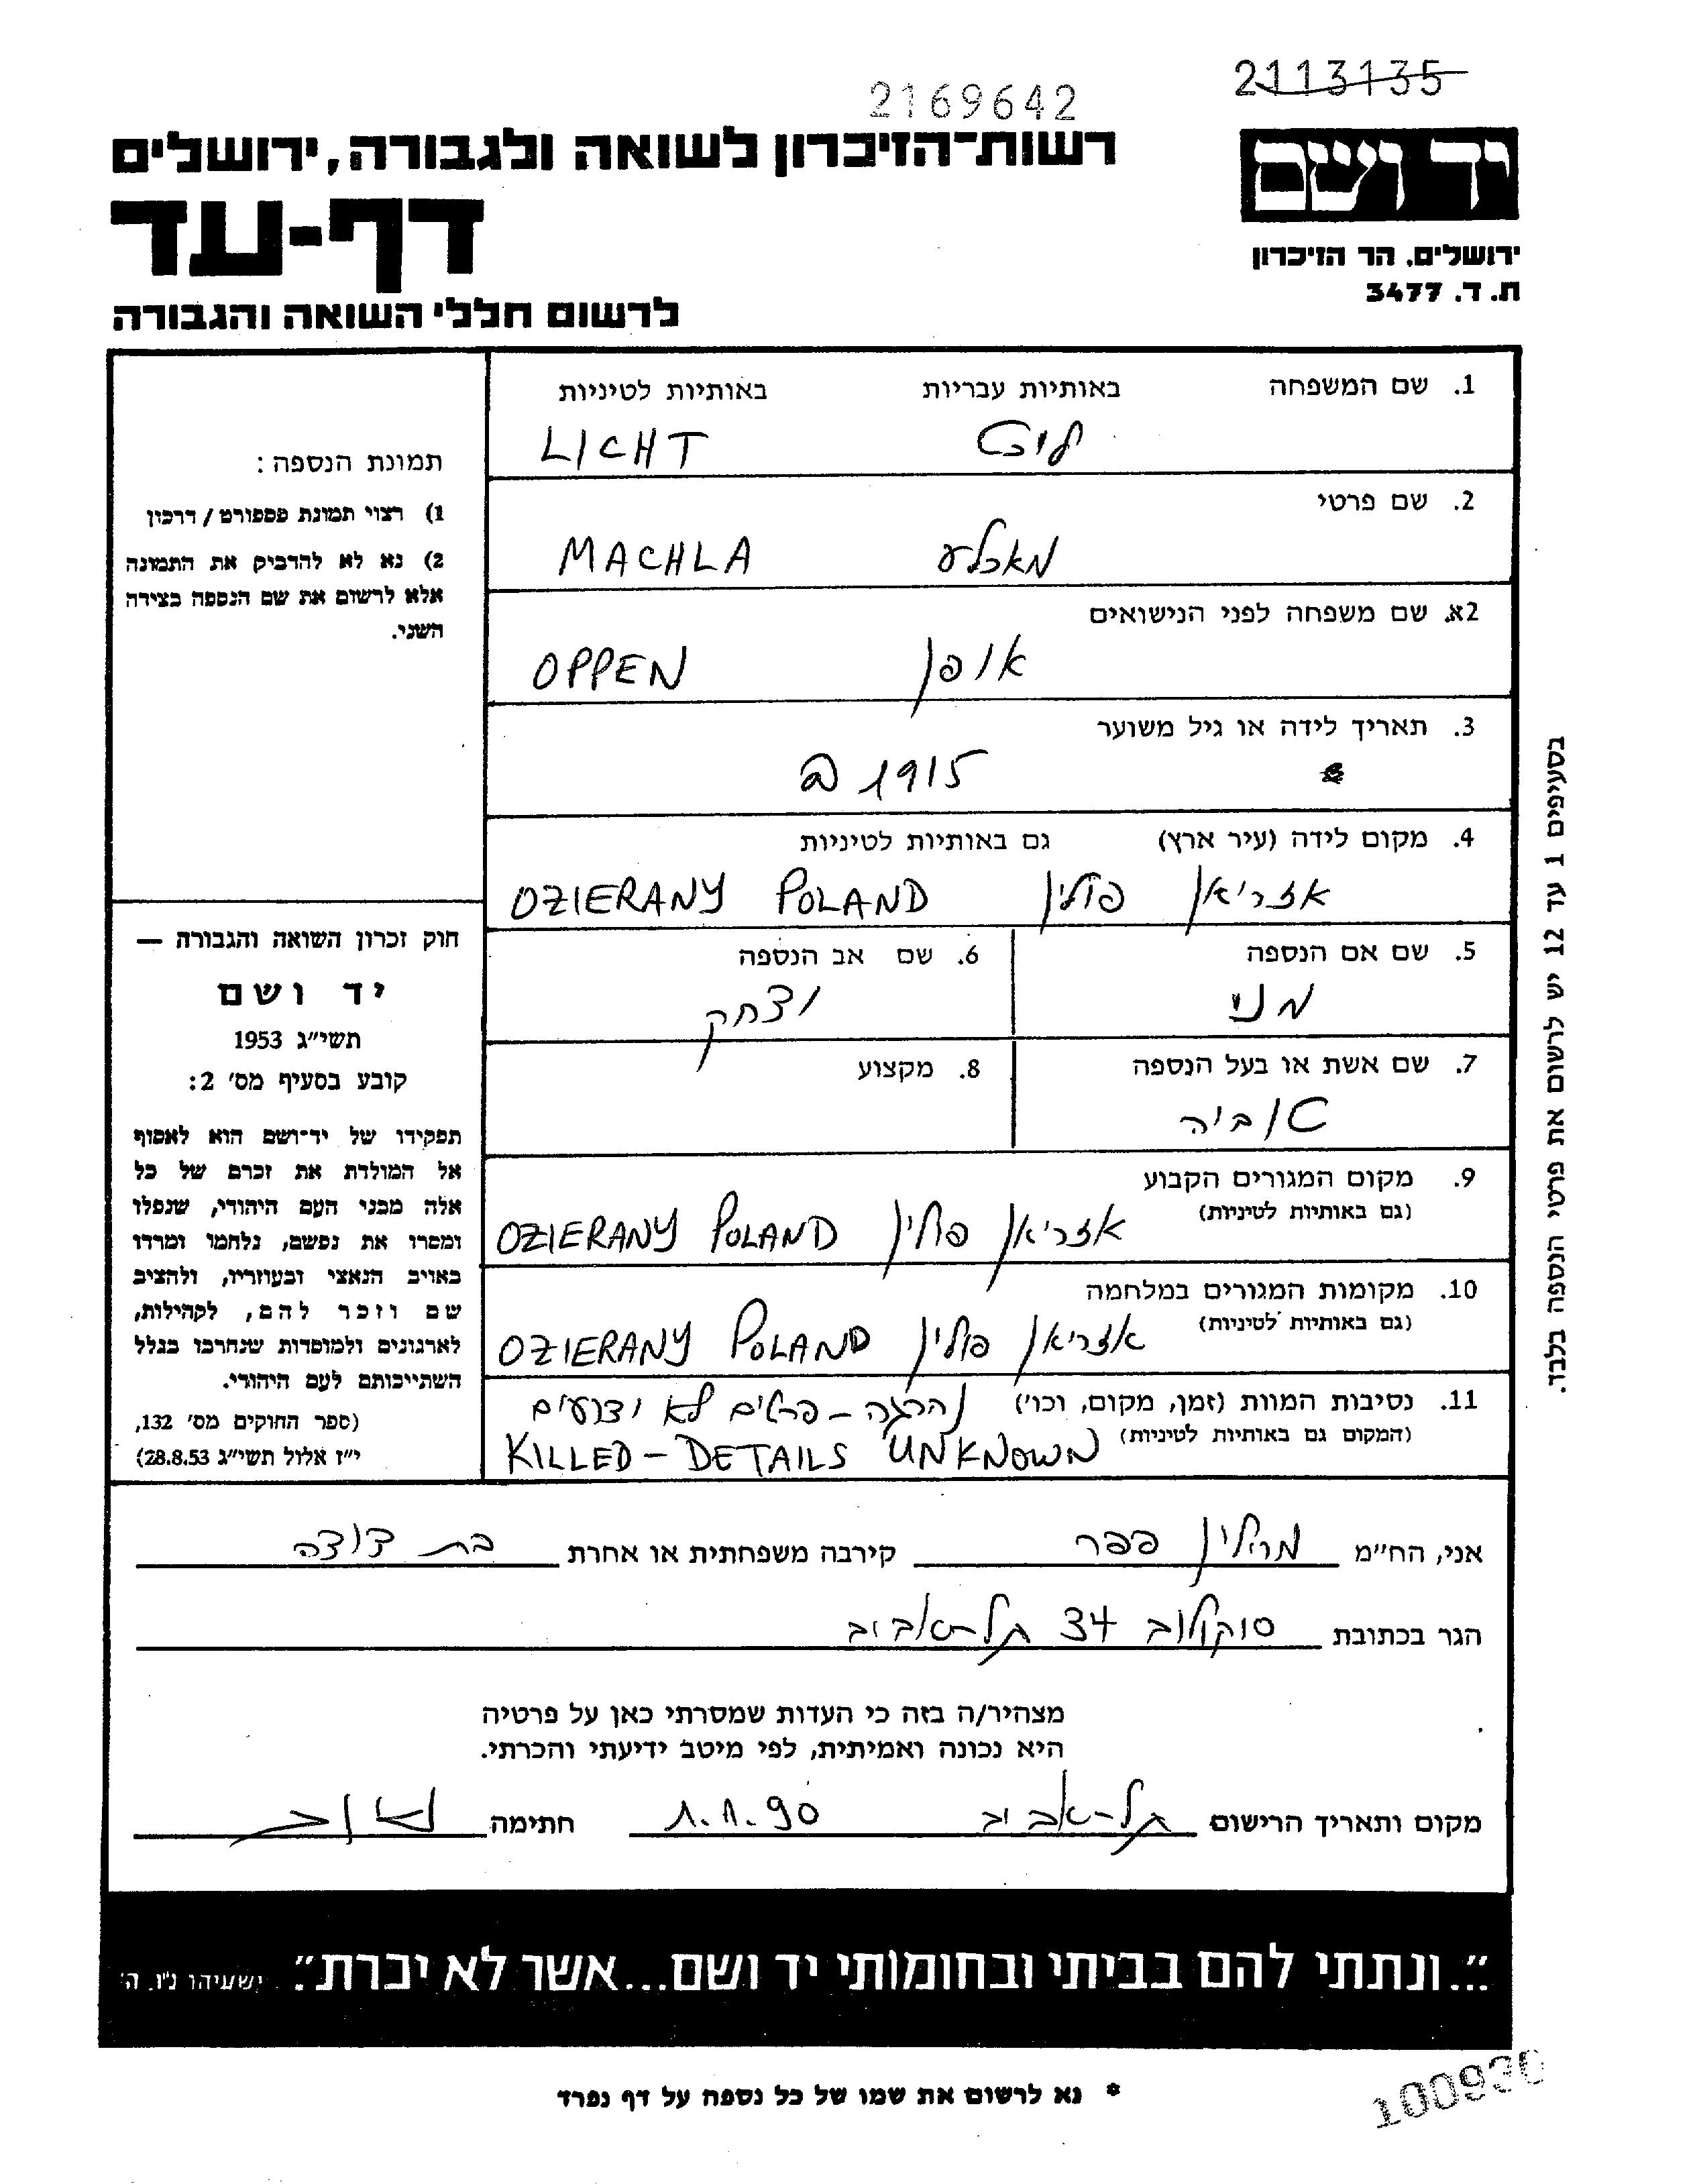 2169642
2113135
יד ושם
רשות־הזיכרון לשואה ולגבורה, ירושלים
דף-עד
ירושלים, הר הזיכרון
ת. ד. 3477
לרשום חללי השואה והגבורה
1. שם המשפחה באותיות עבריות באותיות לטיניות
ליכט LICHT
2. שם פרטי
מאכלע MACHLA
2א. שם משפחה לפני הנישואים
אופן OPPEN
3. תאריך לידה או גיל משוער
1915
4. מקום לידה (עיר ארץ) גם באותיות לטיניות
אזריאן פולין OZIERANY POLAND
5. שם אם הנספה
מני
6. שם אב הנספה
יצחק
7. שם אשת או בעל הנספה
טוביה
8. מקצוע
9. מקום המגורים הקבוע
(גם באותיות לטיניות)
אזריאן פולין OZIERANY POLAND
10. מקומות המגורים במלחמה
(גם באותיות לטיניות)
אזריאן פולין OZIERANY POLAND
11. נסיבות המוות (זמן, מקום, וכו') נהרגה – פרטים לא ידועים
(המקום גם באותיות לטיניות) KILLED – DETAILS UNKNOWN
תמונת הנספה:
1) רצוי תמונת פספורט / דרכון
2) נא לא להדביק את התמונה
אלא לרשום את שם הנספה בצידה
השני.
חוק זכרון השואה והגבורה —
יד ושם
תשי"ג 1953
קובע בסעיף מס' 2:
תפקידו של יד־ושם הוא לאסוף
אל המולדת את זכרם של כל
אלה מבני העם היהודי, שנפלו
ומסרו את נפשם, נלחמו ומרדו
באויב הנאצי ובעוזריו, ולהציב
שם וזכר להם, לקהילות,
לארגונים ולמוסדות שנחרבו בגלל
השתייכותם לעם היהודי.
(ספר החוקים מס' 132,
י"ז אלול תשי"ג 28.8.53)
בסעיפים 1 עד 12 יש לרשום את פרטי הנספה בלבד.
אני, הח"מ מרלין ספר קירבה משפחתית או אחרת בת דודה
הגר בכתובת סוקולוב 34 תל-אביב
מצהיר/ה בזה כי העדות שמסרתי כאן על פרטיה
היא נכונה ואמיתית, לפי מיטב ידיעתי והכרתי.
מקום ותאריך הרישום תל-אביב 1.1.90 חתימה
"...ונתתי להם בביתי ובחומותי יד ושם...אשר לא יכרת". ישעיהו נ"ו, ה'
* נא לרשום את שמו של כל נספה על דף נפרד
100930